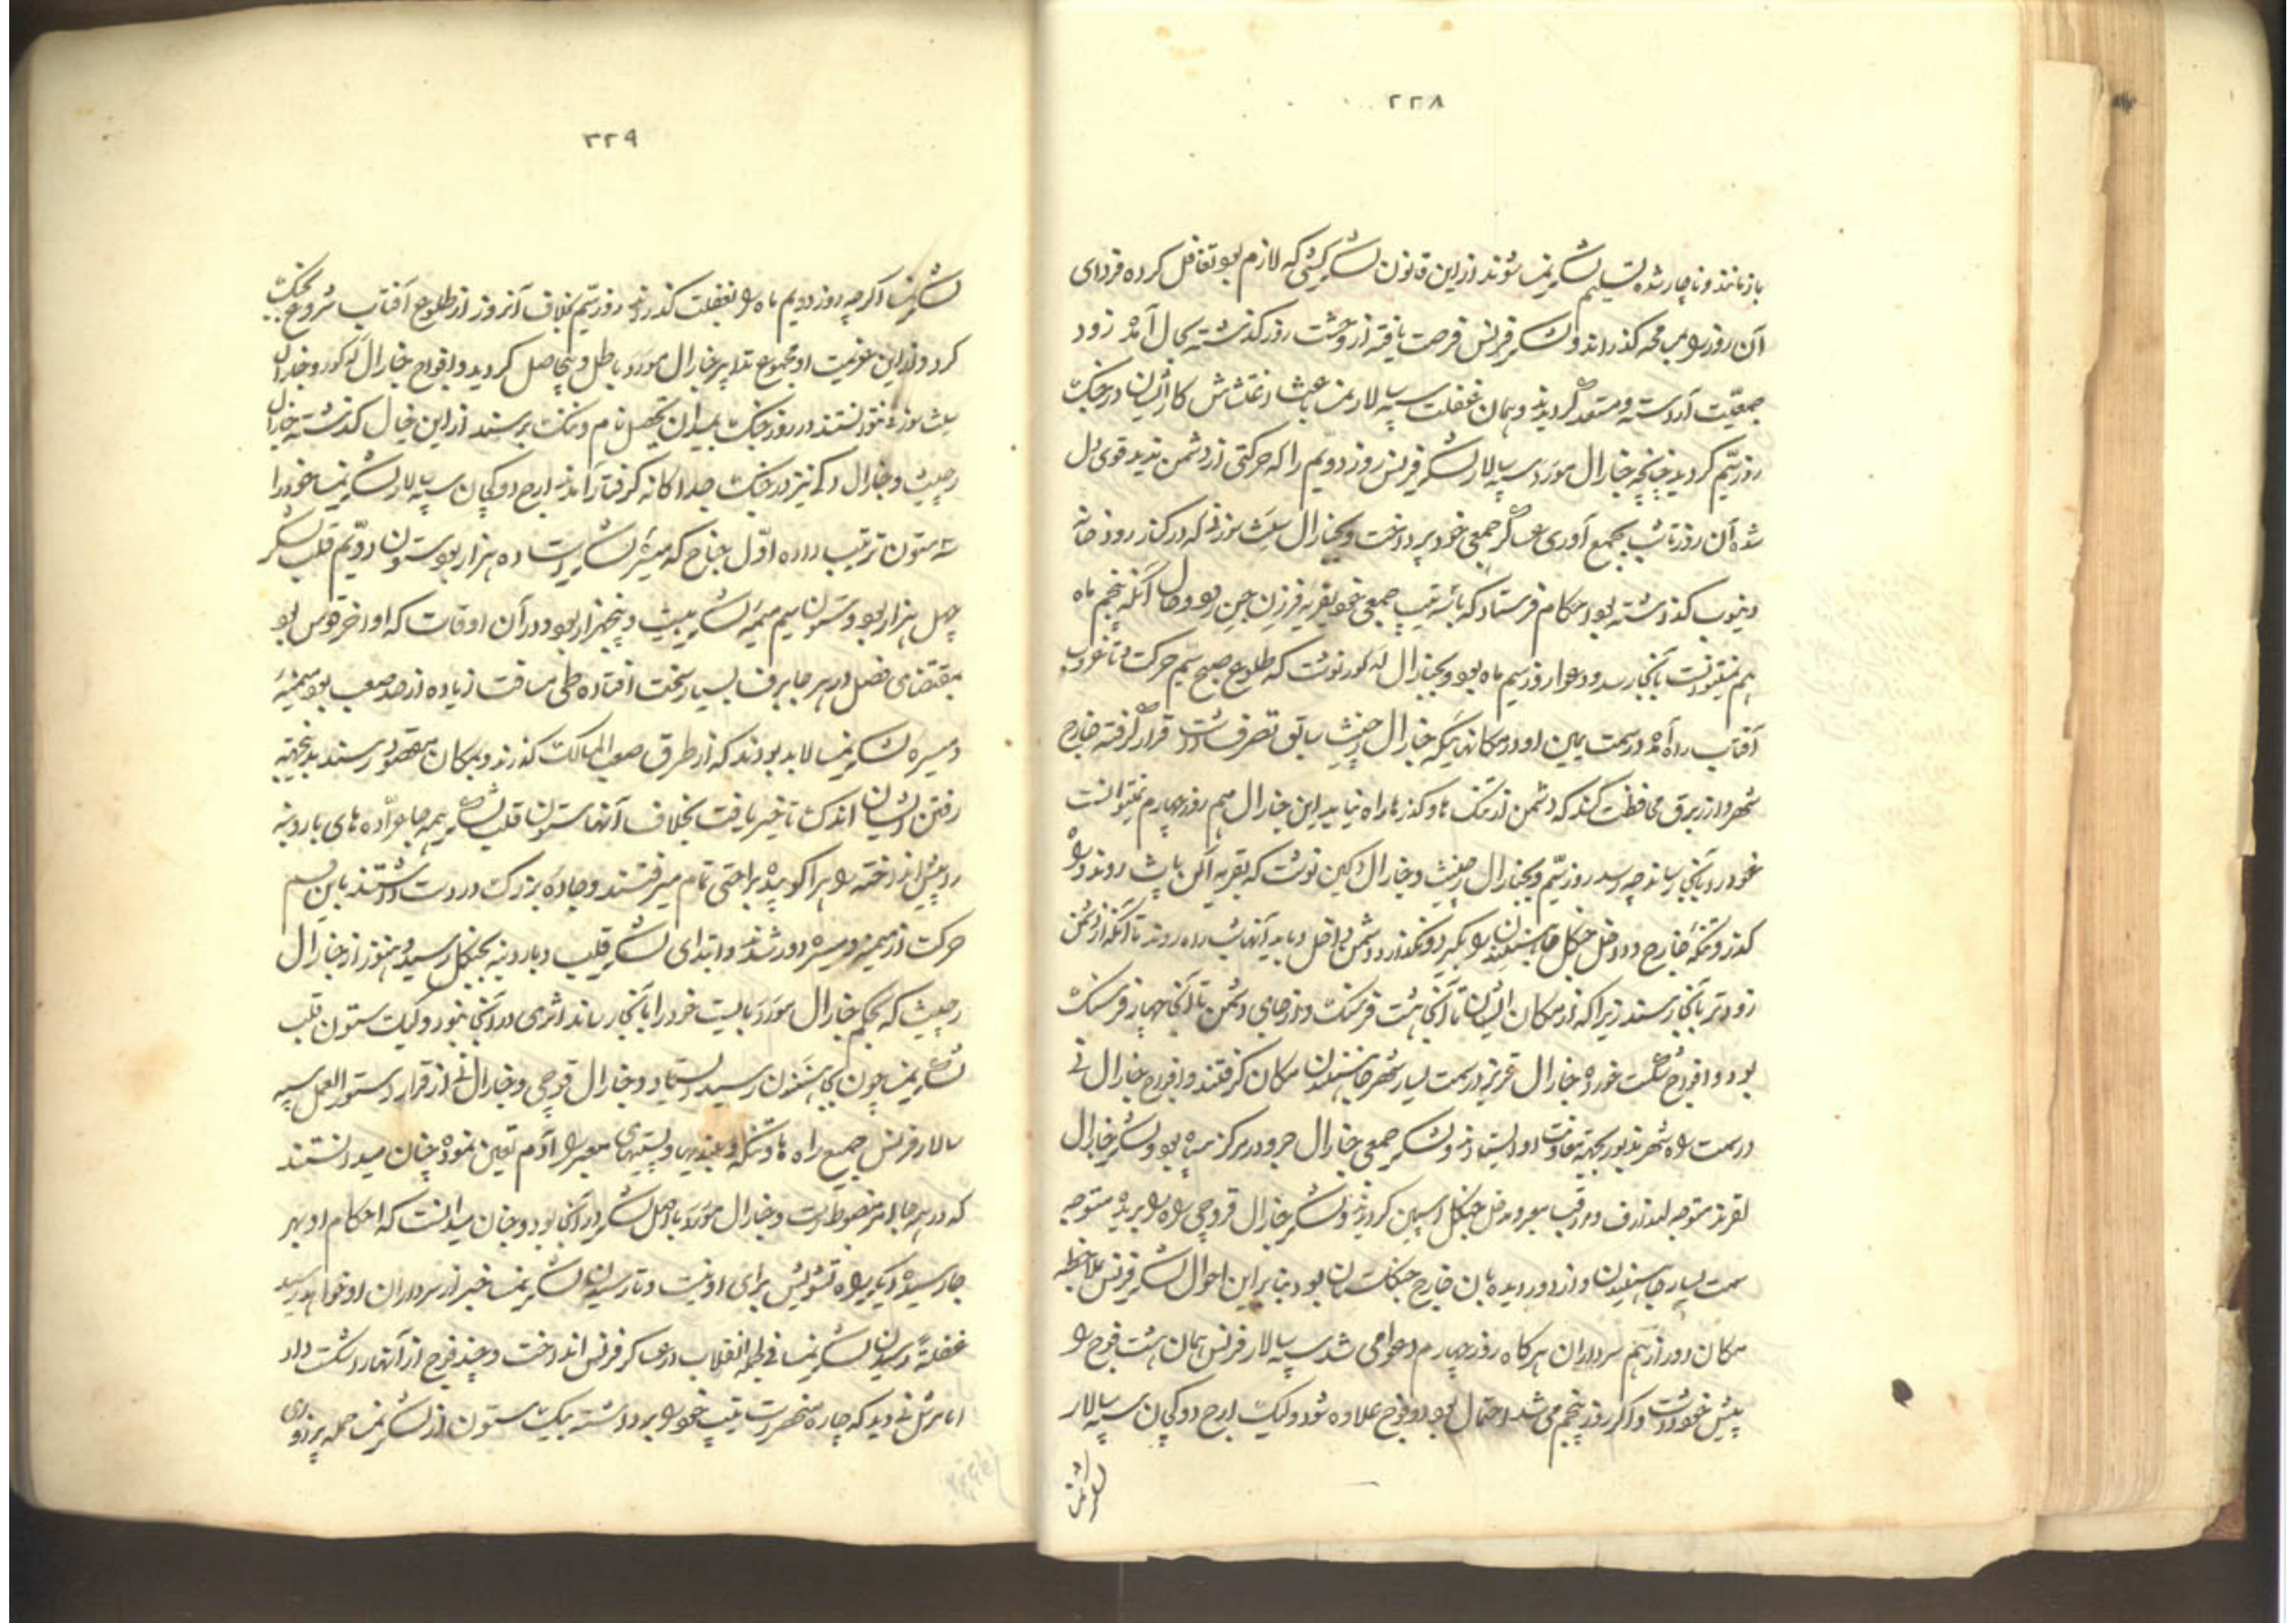 ۲۲۸
باز مانند و ناچار شده تسلیم لشکر نمسا شوند از این قانون لشکرکشی که لازم بود تغافل کرده فردای
آن روز را بی محه گذراند و لشکر فرنس فرصت یافته از وحشت روز گذشته بحال آمده زود
جمعیّت آراسته و مستعد گردیدند و همان غفلت سپه سالار نمسا باعث اغتشاش کار ایشان در جنگ
روز سیّم گردید چنانچه جنارال مورو سپه سالار لشکر فرنس روز دویّم را که حرکتی از دشمن ندید قوی دل
شده آن روز تا شب بجمع آوری عساکر جمعی خود پرداخت و بجنارال سنت سوزنی که در کنار رودخانه
دنیوب گذاشته بود احکام فرستاد که با سه تیپ جمعی خود بقریه فرزین جن رود و حال آنکه پنجم ماه
هم نمیتوانست بآنجا رسد و دعوا روز سیم ماه بود و بجنارال مذکور نوشت که طلوع صبح سیّم حرکت و تا غروب
آفتاب راه آمده در سمت یمین او در مکانهائیکه جنارال رچپنث سابق تصرف داشت قرار گرفته خارج
شهر وازربرق محافظت کند که دشمن از تنگ ها و گذرها راه نیابد این جنارال هم روز چهارم نمیتوانست
خود را بآنجا رساند چه رسد روز سیّم و بجنارال رچپنث و جنارال دکین نوشت که بقریه الن باث روند و راه
گذر و تنگه خارج و داخل جنگل هاهنلندن را بگیرد و نگذارد دشمن داخل و باید آنها شب راه روند تا آنکه از دشمن
زودتر بآنجا رسند زیرا که از مکان ایشان تا آنجا هشت فرسنگ و از جای دشمن تا آنجا چهار فرسنگ
بود و افواج شکست خورده جنارال غرنیز در سمت یسار شهر هاهنلندن مکان گرفتند و افواج جنارال نی
در سمت راه شهر مذبور بجهة معاونت او ایستادند و لشکر جمعی جنارال جرو در مرکز سپاه بود و لشکر جنارال
لقرند متوجه لندارف و مراقب معبر و مدخل جنگل اسپین گردیدند و لشکر جنارال قروچی راه را بریده متوجه
سمت یسار هاهنلندن و از دور دیده بان خارج جنگلستان بود بنابر این احوال لشکر فرنس بملاحظه
مکان دور از هم سرداران هرگاه روز چهارم دعوا می شد سپه سالار فرنس همان هشت فوج را
پیش خود داشت و اگر روز پنجم می شد احتمال بود دو فوج علاوه شود و لیک ارح دوک جان سپه سالار
لشکر نمسا
۲۲۹
لشکر نمسا اگر چه روز دویم ماه را بغفلت گذراند روز سیّم بخلاف آنروز از طلوع آفتاب شروع بجنگ
کرد و از این عزیمت او مجموع تدابیر جنارال مورو باطل و بیحاصل گردید و افواج جنارال مذکور و جنارال
سنت سوزنی نتوانستند در روز جنگ بمیدان تحصیل نام و ننگ برسند از این خیال گذشته جنارال
رچپنث و جنارال دکین نیز در جنگ جداگانه گرفتار آمدند ارح دوک جان سپه سالار لشکر نمسا خود را
سه ستون ترتیب داده اوّل جناح که میسره لشکر است ده هزار بود ستون دویّم قلب لشکر
چهل هزار بود و ستون سیم میمنه لشکر بیست و پنجهزار بود در آن اوقات که اواخر قوس بود
بمقتضای فصل در هر جا برف بسیار سخت افتاده طی مسافت زیاده از حد صعب بود میمنه
و میسره لشکر نمسا لابد بودند که از طرق صعب المسالک گذرند و بمکان مقصود رسند بدینجهة
رفتن ایشان اندک تأخیر یافت بخلاف آنها ستون قلب لشکر همه جا عرّاده های باروبنه
را پیش انداخته راه را کوبیده براحتی تمام میرفتند و جاده بزرگ در دست داشتند باین قسم
حرکت از میمنه و میسره دور شدند و ابتدای لشکر قلب و باروبنه بجنگل رسید و هنوز از جنارال
رچپنث که بحکم جنارال مورو بایست خود را بآنجا رساند اثری در آنجا نبود ولیک ستون قلب
لشکر نمسا چون بهاهنلندن رسید ایستاد و جنارال قروچی و جنارال نی از قرار دستور العمل سپه
سالار فرنس جمیع راه ها و تنگه و بلندیها و پستیهای معبر را آدم تعین نموده چنان میدانستند
که در همه جا امر مضبوط است و جنارال مورو با اصل لشکر در آنجا بود و چنان میدانست که احکام او بهر
جا رسیده دیگر راه تشویش برای او نیست و تا رسیدن لشکر نمسا خبر از سرداران او خواهد رسید
غفلةً رسیدن لشکر نمسا فی الجمله انقلاب در عساکر فرنس انداخت و چند فوج از آنها را شکست داد
اما مرشل نی دید که چاره منحصر است تیپ خود را برداشته بیک ستون از لشکر نمسا حمله برد و